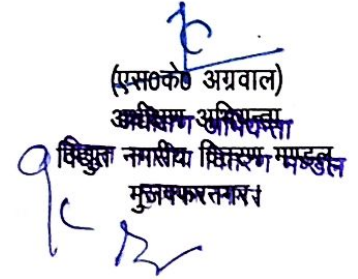 (एस0के0 अग्रवाल)
अधीक्षण अभियन्ता
विद्युत नगरीय वितरण मण्डल
मुजफ्फरनगर।